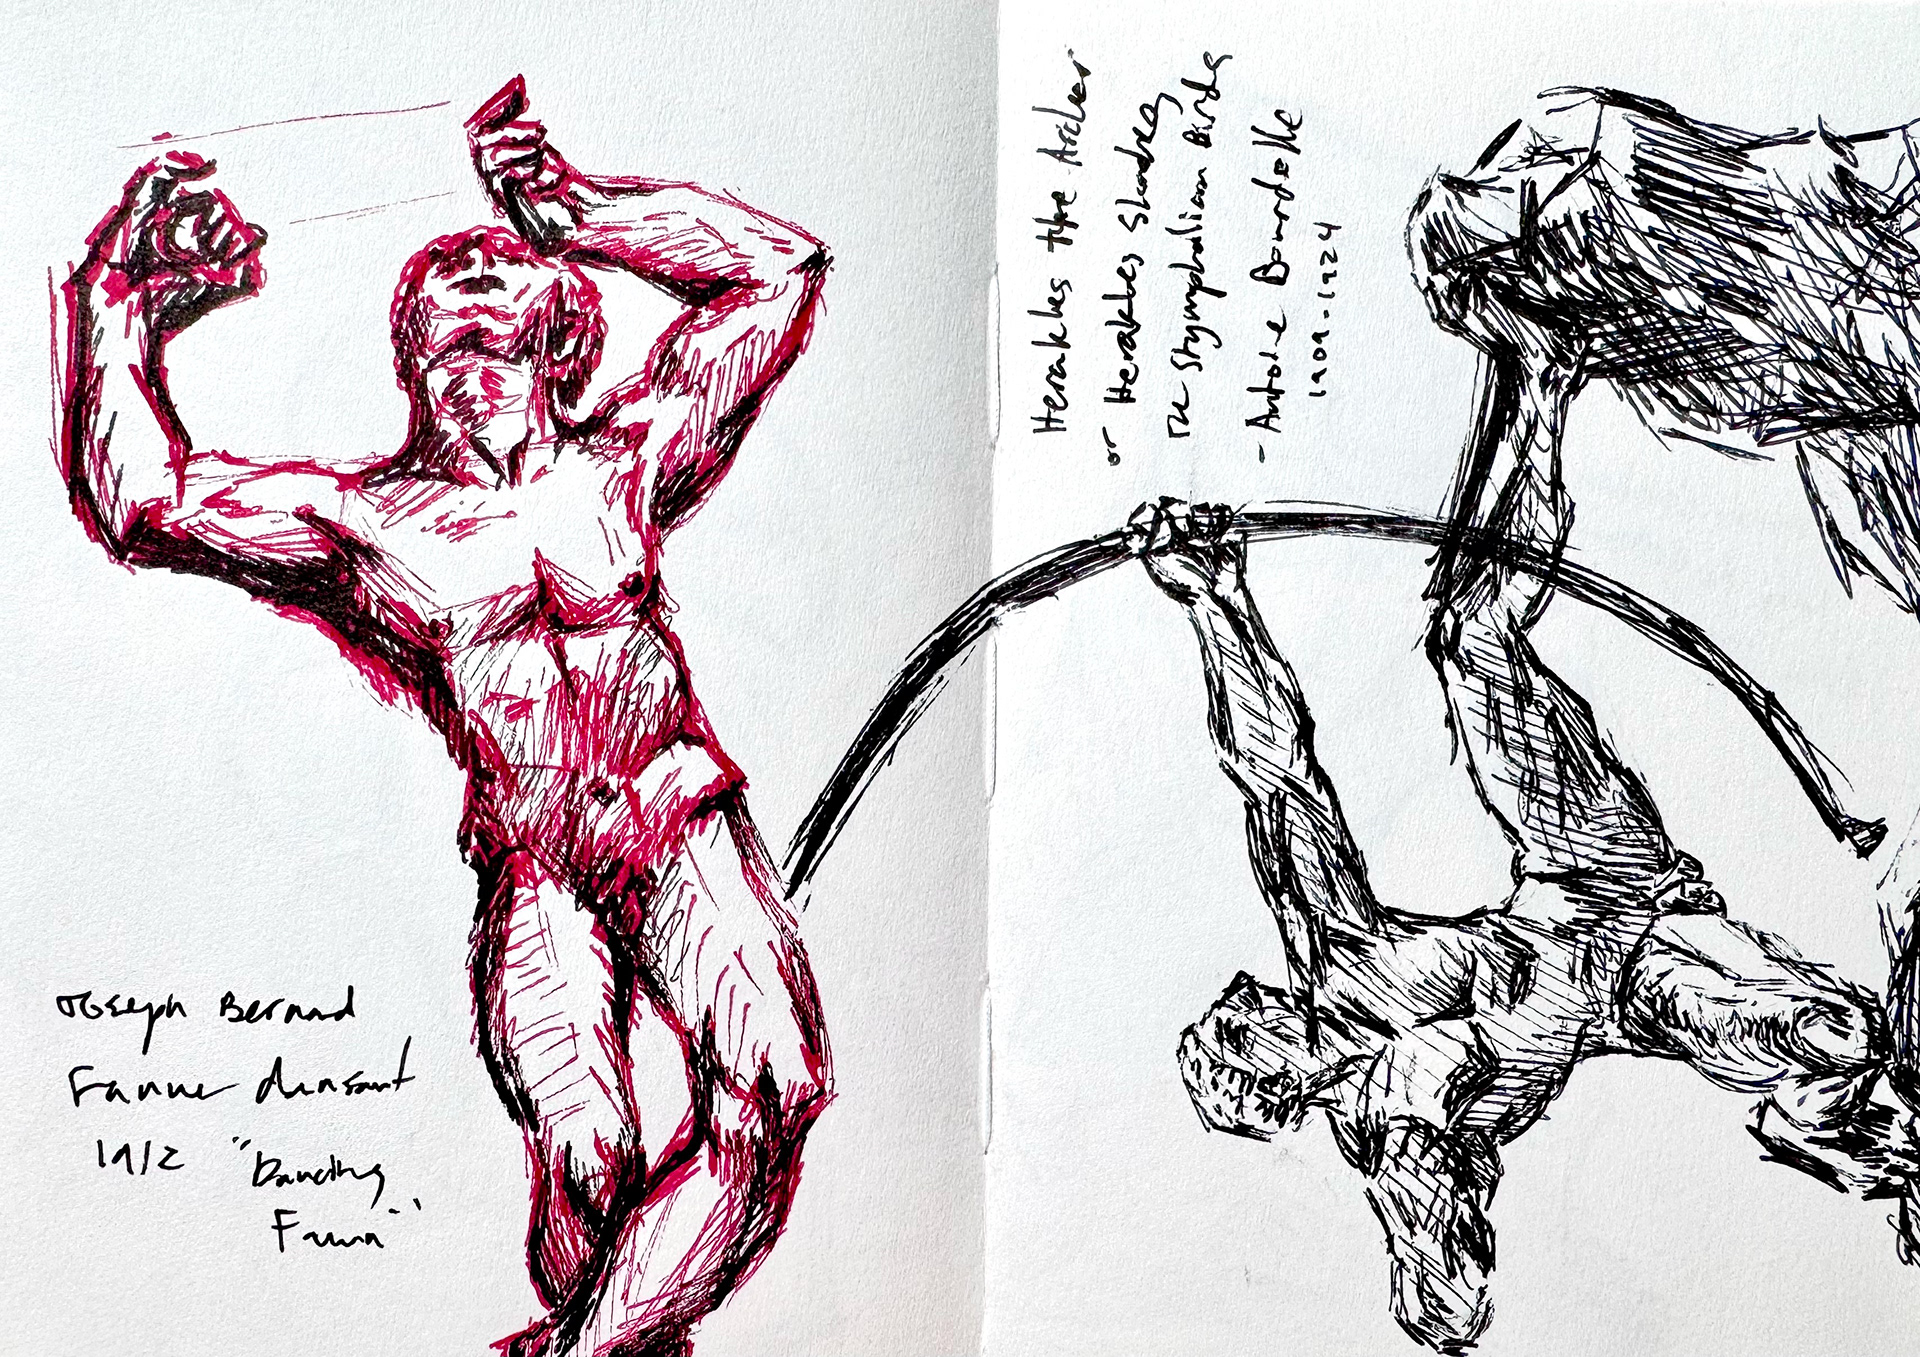 Joseph Bernard
Faune dansant
1912 "Dancing
Faun"
Herakles the Archer
or Herakles Slaying
The Stymphalian Birds
- Antoine Bourdelle
1909-1924